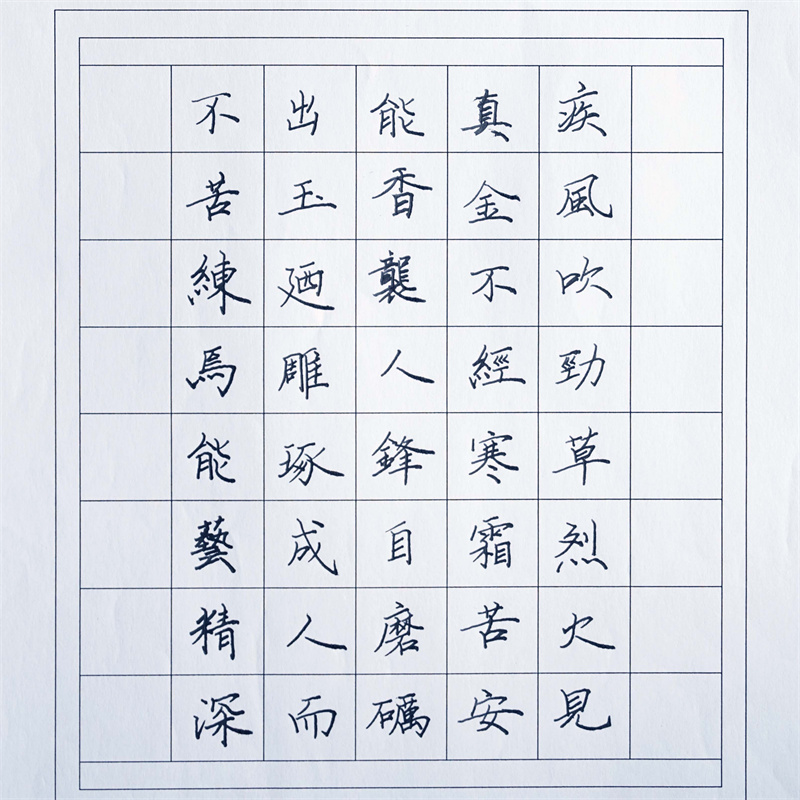 疾風吹勁草烈火見
真金不經寒霜苦安
能香襲人鋒自磨礪
出玉廼雕琢成人而
不苦練焉能藝精深